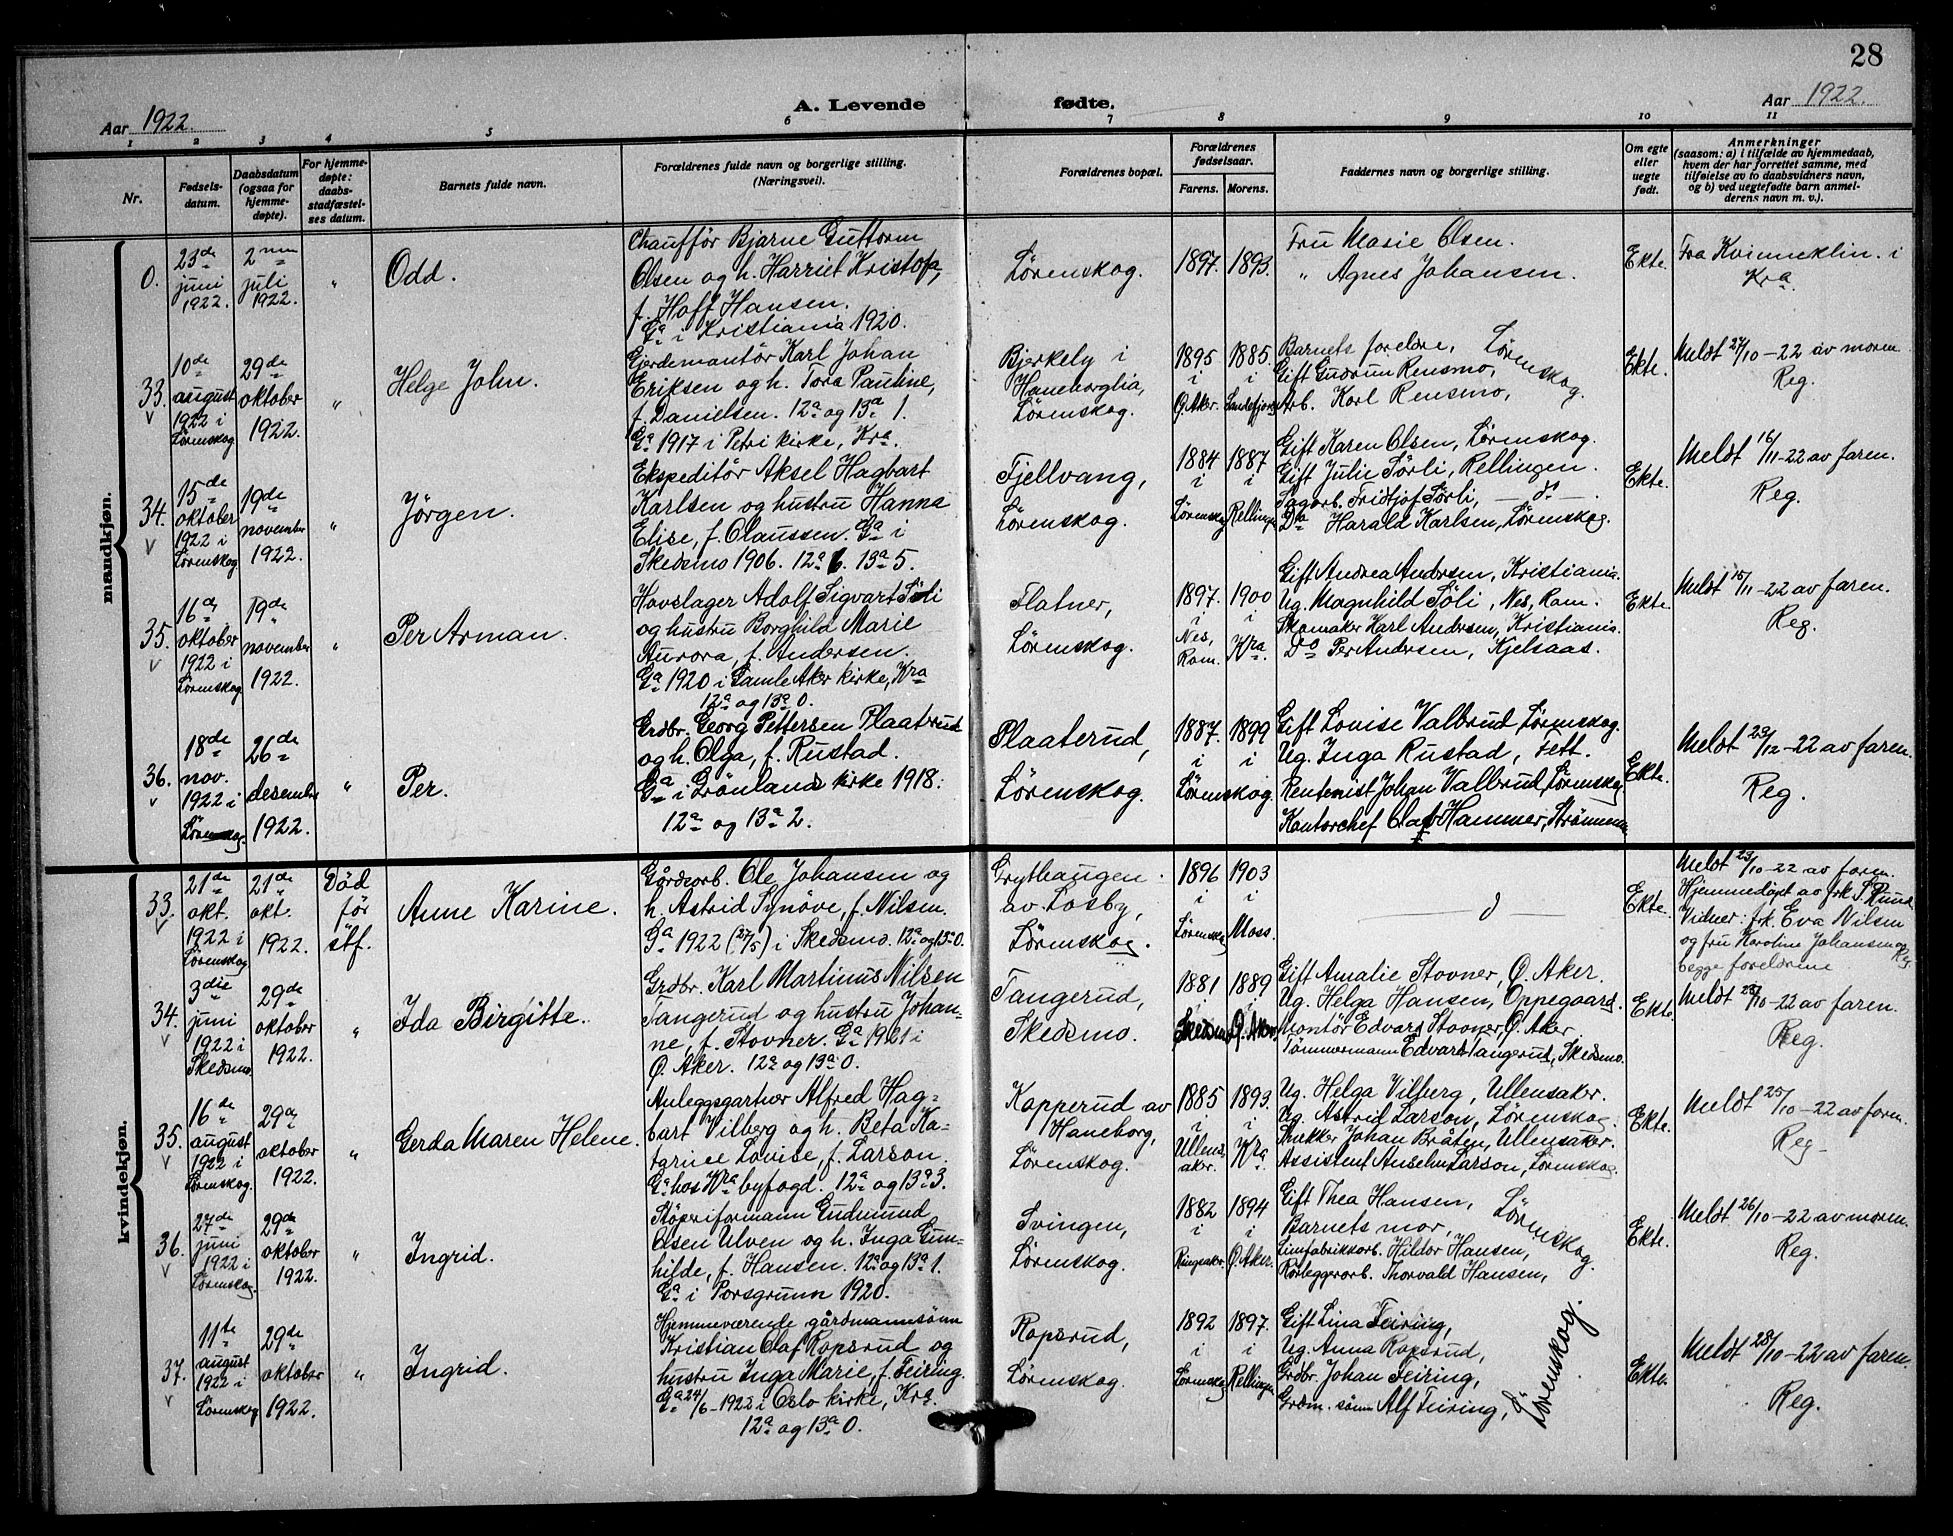 28
Aar 1922.
A. Levende
fødte.
Aar 1922.
1 2 3 4 5 6 7 8 9 10 11
Nr.
Fødsels-
datum.
Daabsdatum
(ogsaa for
hjemme-
døpte).
For hjemme-
døpte:
daabs-
stadfæstel-
ses datum.
Barnets fulde navn.
Forældrenes fulde navn og borgerlige stilling.
(Næringsvei).
Forældrenes bopæl.
Forældrenes
fødselsaar.
Farens. Morens.
Faddernes navn og borgerlige stilling.
Om egte
eller
uegte
født.
Anmerkninger
(saasom: a) i tilfælde av hjemmedaab,
hvem der har forrettet samme, med
tilføielse av to daabsvidners navn,
og b) ved uegtefødte barn anmel-
derens navn m. v.).
mandkjøn.
0.
23de
juni
1922.
2nen
juli
1922.
"
Odd.
Chauffør Bjarne Guttorm
Olsen og h. Harriet Kristofa,
f. Hoff Hansen.
Ga i Kristiania 1920.
Lörenskog.
1897. 1893.
Fru Marie Olsen.
" Agnes Johansen.
Ekte.
Fra Kvinneklin. i
Kra.
33.
10de
august
1922 i
Lörenskog
29de
oktober
1922.
"
Helge John.
Gjerdemontör Karl Johan
Eriksen og h. Tora Pauline,
f. Danielsen. 12a og 13a 1.
Ga 1917 i Petri kirke, Kra.
Bjerkely i
Haneborglia,
Lörenskog.
1895 1885.
i i
Ö. Aker. Sandefjord
Barnets foreldre, Lörenskog.
Gift Gudrun Rensmo,
Arb. Karl Rensmo,
Ekte.
Meldt 27/10-22 av moren
Reg.
34.
15de
oktober
1922 i
Lörenskog
19de
november
1922.
"
Jörgen.
Ekspeditör Aksel Hagbart
Karlsen og hustru Hanna
Elise, f. Olaussen. Ga i
Skedsmo 1906. 12a 6. 13a 5.
Fjellvang,
Lörenskog.
1884 1887
i i
Lörenskog Rellingen
Gift Karen Olsen, Lörenskog.
Gift Julie Sörli, Rellingen.
Sagarb. Fridtjof Sörli, — do —.
Do Harald Karlsen, Lörenskog.
Ekte.
Meldt 16/11-22 av faren.
Reg.
35.
16de
oktober
1922 i
Lörenskog
19de
november
1922.
"
Per Arman.
Hovslager Adolf Sigvart Söli
og hustru Borghild Marie
Aurora, f. Andersen.
Ga 1920 i Gamle Aker kirke, Kra
12a og 13a 0.
Flatner,
Lörenskog.
1897. 1900
i i
Nes,
Rom. Kra.
Gift Andrea Andersen, Kristiania.
Ug. Magnhild Söli, Nes, Rom.
Skomaker Karl Andersen, Kristiania.
Do Per Andersen, Kjelsaas.
Ekte.
Meldt 15/11-22 av faren.
Reg.
36.
18de
nov.
1922 i
Lörenskog.
26de
desember
1922.
"
Per.
Grdbr. Georg Pettersen Plaaterud
og h. Olga, f. Rustad.
Ga i Grönlands kirke 1918.
12a og 13a 2.
Plaaterud,
Lörenskog.
1887. 1899
i i
Lörenskog.
Gift Lovise Valbrud, Lörenskog.
Ug. Inga Rustad, Fett.
Rentenist Johan Valbrud, Lörenskog
Kontorchef Olaf Hammer, Strömmen
Ekte.
Meldt 23/12-22 av faren.
Reg.
kvindekjøn.
33.
21de
okt.
1922 i
Lörenskog
21de
okt.
1922.
Död
för
stf.
Anne Karine.
Gårdsarb. Ole Johansen og
h. Astrid Synöve, f. Nilsen.
Ga 1922 (27/5) i Skedsmo. 12a og 13a 0.
Grythaugen
av Losby,
Lörenskog.
1896 1903
i i
Lörenskog Moss.
Ekte.
Meldt 23/10-22 av faren.
Hjemmedöpt av frk. S. Rund
Vidner: frk. Eva Nilsen
og fru Karoline Johansen og
begge foreldrene Reg.
34.
3die
juni
1922 i
Skedsmo.
29de
oktober
1922.
"
Ida Birgitte.
Grdbr. Karl Martinus Nilsen
Tangerud og hustru Johan-
ne, f. Stovner. Ga 1921 i
Ö. Aker. 12a og 13a 0.
Tangerud,
Skedsmo.
1881 1889
i i
Skedsmo Ö. Aker.
Gift Amalie Stovner, Ö. Aker.
Ug. Helga Hansen, Oppegaard.
Montör Edvard Stovner, Ö. Aker.
Tömmermann Edvard Tangerud, Skedsmo.
Ekte.
Meldt 23/10-22 av faren.
Reg.
35.
16de
august
1922 i
Lörenskog.
29de
oktober
1922.
"
Gerda Maren Helene.
Anleggsgartner Alfred Hag-
bart Vilberg og h. Beta Ka-
tarine Lovise, f. Larson.
Ga hos Kra byfogd. 12a og 13a 3.
Kopperud av
Haneborg,
Lörenskog.
1885 1893.
i i
Ullens-
aker. Kra.
Ug. Helga Vilberg, Ullensaker.
Ug. Astrid Larson, Lörenskog.
Snekker Johan Bråten, Ullensaker.
Assistent Anselm Larson, Lörenskog.
Ekte.
Meldt 25/10-22 av faren.
Reg.
36.
27de
juni
1922 i
Lörenskog.
29de
oktober
1922.
"
Ingrid.
Stöperiformann Gudmund
Olsen Ulven og h. Inga Gun-
hilde, f. Hansen. 12a og 13a 1.
Ga i Porsgrunn 1920.
Svingen,
Lörenskog.
1882 1894
i i
Ringsaker. Ö. Aker.
Gift Thea Hansen, Lörenskog.
Barnets mor,
Limfabrikkarb. Hildor Hansen,
Rörleggerarb. Thorvald Hansen,
Ekte.
Meldt 26/10-22 av moren.
Reg.
37.
11te
august
1922 i
Lörenskog
29de
oktober
1922.
"
Ingrid.
Hjemmeværende gårdmannssönn
Kristian Olaf Ropsrud og
hustru Inga Marie, f. Feiring.
Ga 24/6-1922 i Oslo kirke, Kra.
12a og 13a 0.
Ropsrud,
Lörenskog.
1892 1897.
i i
Lörenskog Rellingen
Gift Lina Feiring, Lörenskog.
Ug. Anna Ropsrud,
Grdbr. Johan Feiring,
Grdm. sönn Alf Feiring,
Ekte.
Meldt 28/10-22 av faren.
Reg.